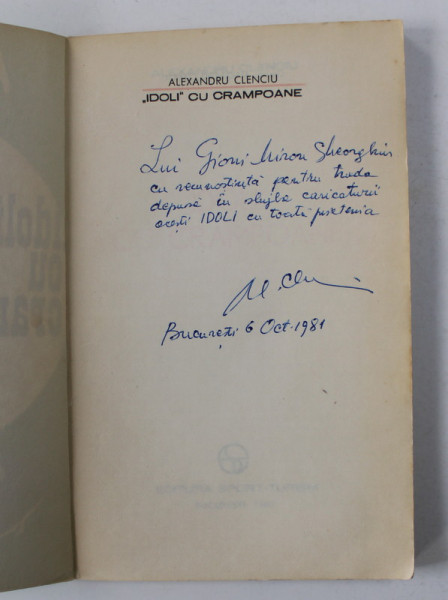 ALEXANDRU CLENCIU
„IDOLI” CU CRAMPOANE
Lui Gioni Miron Gheorghiu
cu recunoștință pentru truda
depusă în slujba caricaturii
acești IDOLI cu toată prietenia
Al. Clenciu
București 6 Oct. 1981